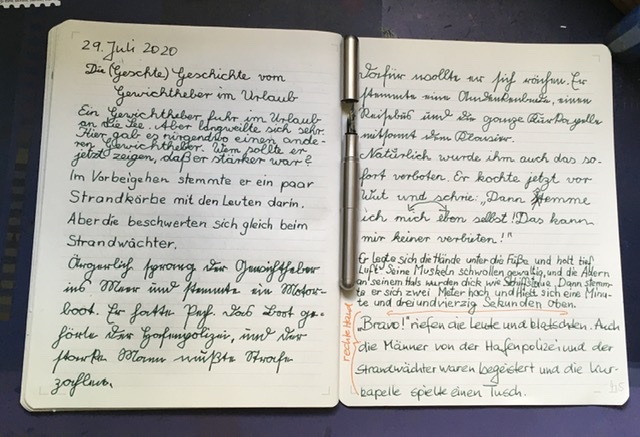 29. Juli 2020
Die (Geschte) Geschichte vom
Gewichtheber im Urlaub
Ein Gewichtheber fuhr im Urlaub
an die See. Aber langweilte sich sehr.
Hier gab es nirgendwo einen ande-
ren Gewichtheber. Wem sollte er
jetzt zeigen, daß er stärker war?
Im Vorbeigehen stemmte er ein paar
Strandkörbe mit den Leuten darin.
Aber die beschwerten sich gleich beim
Strandwächter.
Ärgerlich sprang der Gewichtheber
ins Meer und stemmte ein Motor-
boot. Er hatte Pech. Das Boot ge-
hörte der Hafenpolizei, und der
starke Mann mußte Strafe
zahlen.
Dafür wollte er sich rächen. Er
stemmte eine Andenkenbude, einen
Reisebus und die ganze Kurkapelle
mitsamt dem Klavier.
Natürlich wurde ihm auch das so-
fort verboten. Er kochte jetzt vor
Wut und schrie: „Dann stemme
ich mich eben selbst! Das kann
mir keiner verbieten!"
Er legte sich die Hände unter die Füße und holt tief
Luft. Seine Muskeln schwollen gewaltig, und die Adern
an seinem Hals wurden dick wie Schiffstaue. Dann stemm-
te er sich zwei Meter hoch und hielt sich eine Minu-
te und dreiundvierzig Sekunden oben.
rechte Hand
„Bravo!" riefen die Leute und klatschten. Auch
die Männer von der Hafenpolizei und der
Strandwächter waren begeistert und die Kur-
kapelle spielte einen Tusch.